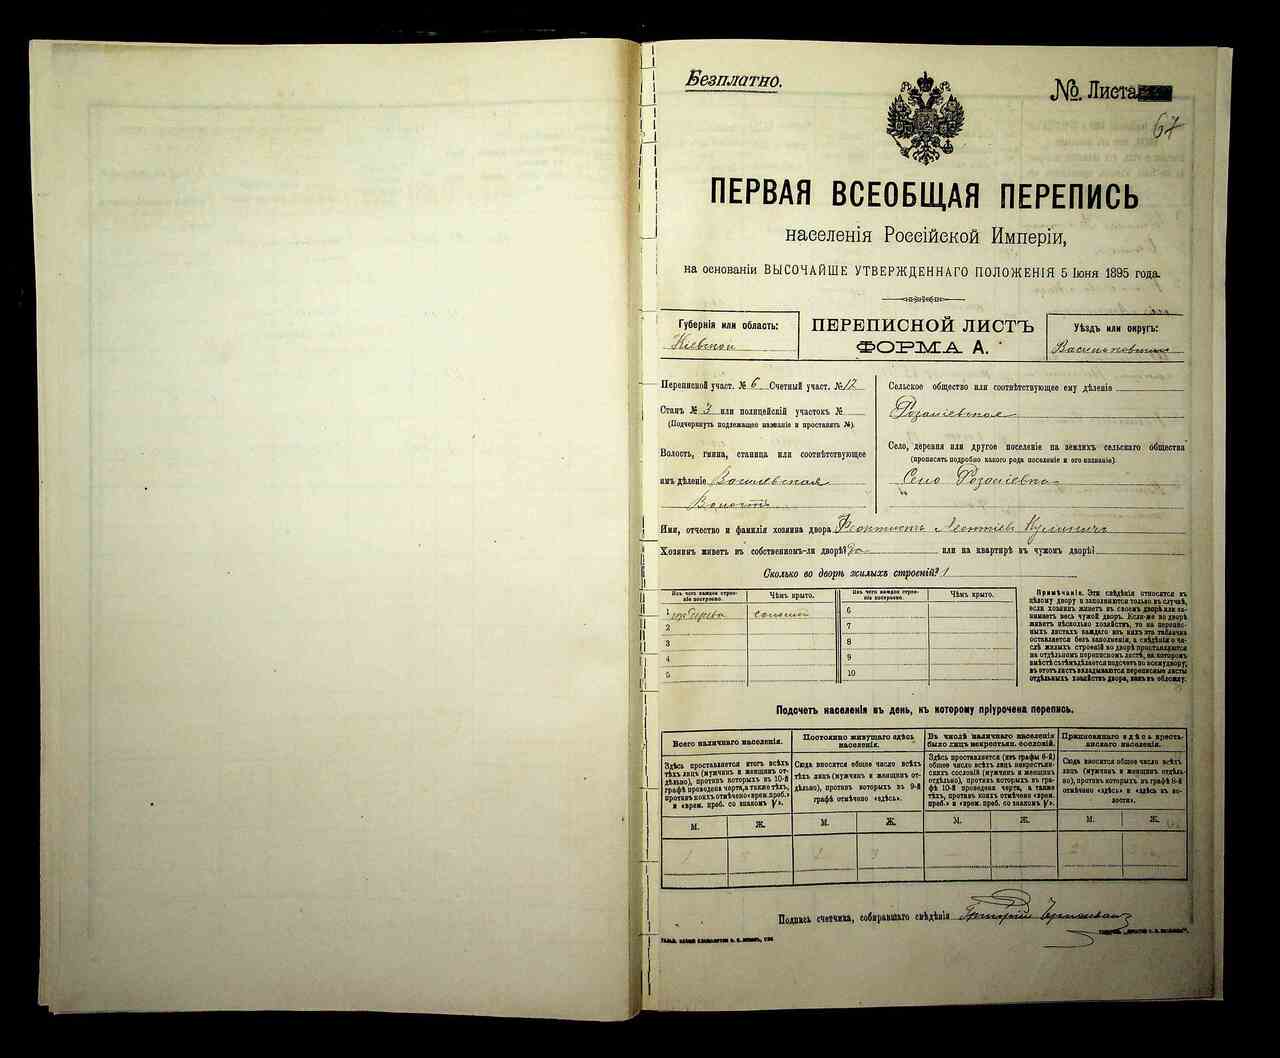 Безплатно.
№ Листа
67
ПЕРВАЯ ВСЕОБЩАЯ ПЕРЕПИСЬ
населенія Россійской Имперіи,
на основаніи ВЫСОЧАЙШЕ УТВЕРЖДЕННАГО ПОЛОЖЕНІЯ 5 Іюня 1895 года.
Губернія или область:
Кіевской
ПЕРЕПИСНОЙ ЛИСТЪ
ФОРМА А.
Уѣздъ или округъ:
Переписной участ. № 6 Счетный участ. № 12
Станъ № 3 или полицейскій участокъ №
(Подчеркнуть подлежащее названіе и проставить №).
Волость, гмина, станица или соотвѣтствующее
имъ дѣленіе
Волость
Сельское общество или соотвѣтствующее ему дѣленіе
Розаліевская
Село, деревня или другое поселеніе на земляхъ сельскаго общества
(прописать подробно какого рода поселеніе и его названіе).
Село Розаліевка
Имя, отчество и фамилія хозяина двора Феоктистъ Леонтіев
Хозяинъ живетъ въ собственномъ-ли дворѣ? да или на квартирѣ въ чужомъ дворѣ?
Сколько во дворѣ жилыхъ строеній? 1
Изъ чего каждое строеніе построено.
Чѣмъ крыто.
Изъ чего каждое строеніе построено.
Чѣмъ крыто.
1 изъ дерева соломой
2
3
4
5
6
7
8
9
10
Примѣчанія. Эти свѣдѣнія относятся къ
цѣлому двору и заполняются только въ случаѣ,
если хозяинъ живетъ въ своемъ дворѣ или занимаетъ
весь чужой дворъ. Если-же во дворѣ
живетъ нѣсколько хозяйствъ, то на переписныхъ
листахъ каждаго изъ нихъ эта табличка
оставляется безъ заполненія, а свѣдѣнія о числѣ
жилыхъ строеній во дворѣ проставляются
на отдѣльномъ переписномъ листѣ, на которомъ
вмѣстѣ съ тѣмъ дѣлается подсчетъ по всему двору;
въ этотъ листъ вкладываются переписные листы
отдѣльныхъ хозяйствъ двора, какъ въ обложку.
Подсчетъ населенія въ день, къ которому пріурочена перепись.
Всего наличнаго населенія.
Постоянно живущаго здѣсь населенія.
Въ числѣ наличнаго населенія было лицъ некрестьян. сословій.
Приписаннаго здѣсь крестьянскаго населенія.
Здѣсь проставляется итогъ всѣхъ
тѣхъ лицъ (мужчинъ и женщинъ отдѣльно),
противъ которыхъ въ 10-й
графѣ проведена черта, а также тѣхъ,
противъ коихъ отмѣчено «врем. преб.»
и «врем. преб. со знакомъ V».
Сюда вносится общее число всѣхъ
тѣхъ лицъ (мужчинъ и женщинъ отдѣльно),
противъ которыхъ въ 9-й
графѣ отмѣчено «здѣсь».
Здѣсь проставляется (изъ графы 6-й)
общее число всѣхъ лицъ некрестьянскихъ
сословій (мужчинъ и женщинъ
отдѣльно), противъ которыхъ въ графѣ
10-й проведена черта, а также
тѣхъ, противъ коихъ отмѣчено «врем.
преб.» и «врем. преб. со знакомъ V».
Сюда вносится общее число всѣхъ
лицъ (мужчинъ и женщинъ отдѣльно),
противъ которыхъ въ графѣ 8-й
отмѣчено «здѣсь» и «здѣсь въ волости».
М. Ж. М. Ж. М. Ж. М. Ж.
Подпись счетчика, собиравшаго свѣдѣнія Григорій